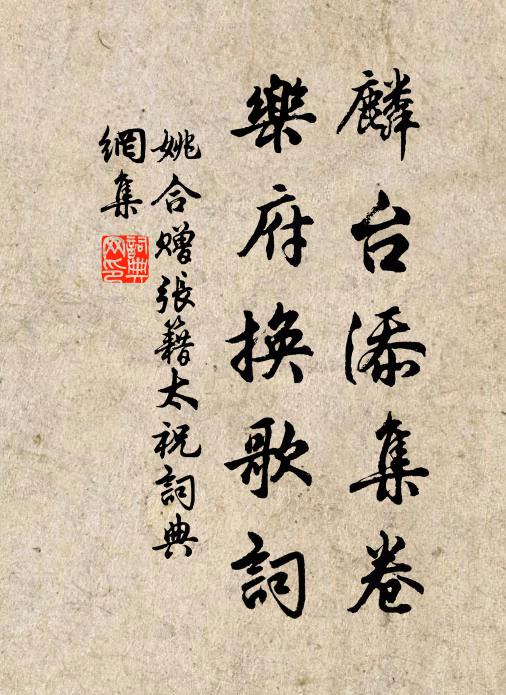 麟台添集卷
樂府換歌詞
姚合赠張籍太祝詞典
網集
詞典网印